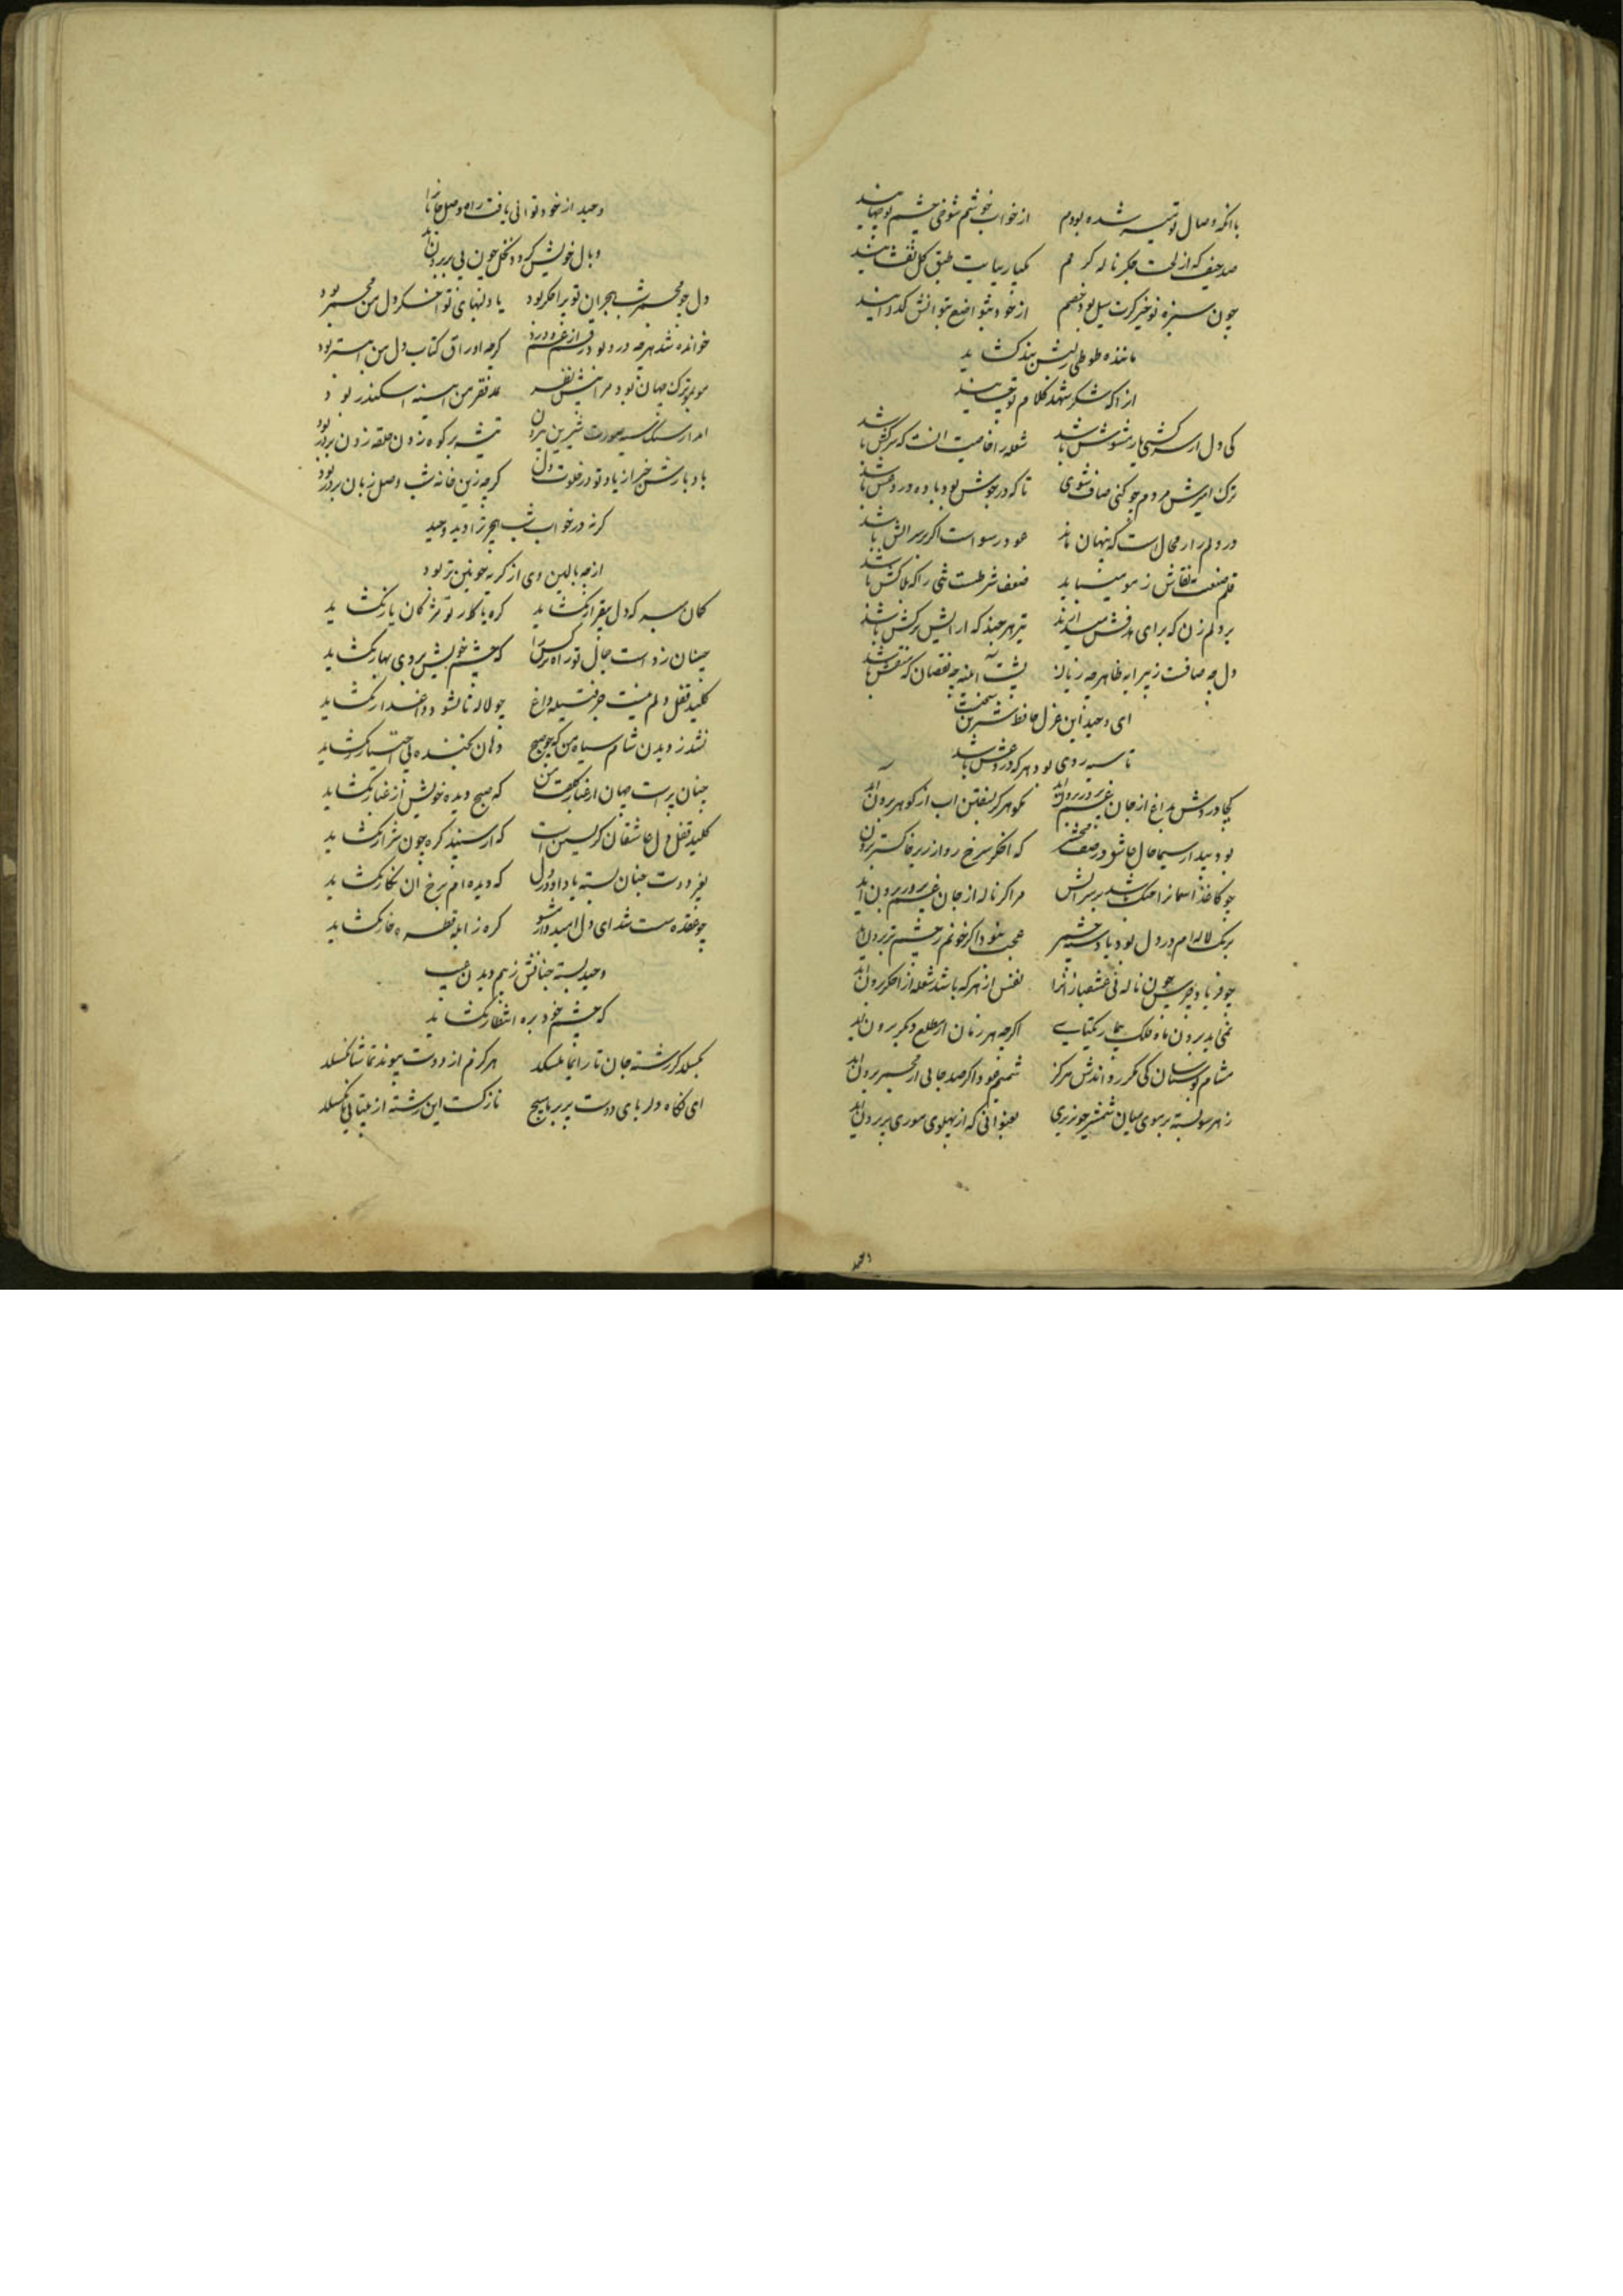 با انکه وصال تو میسر شده بودم از خواب خوشم شوخی چشم تو جهانید
صد حیف که از لخت جکر ناله کر م یکبار بپایت طبق کل نفشانید
چون سبزه نوخیز کرت سیل بود خصم از خود بتواضع بتوانش کذرانید
ماننده طوطی پر بش بند کشاید
از انکه شکر شهد کلام تو چشانید
کی دل از سرکشی یار مشوش باشد شعله را خاصیت انست که سرکش باشد
ترک امیزش مردم چو کنی صاف شوی تا که در جوش بود باده در وغش باشد
در دلم راز محالست که پنهان ماند عود رسواست اکر بر سر اتش باشد
قلم صنعت نقاش ز مو میباید ضعف شرطست تنی را که بلاکش باشد
بر دلم زن که برای هدفش میسازند تیر هر چند که ارایش ترکش باشد
دل چو صافست زپیرایه ظاهر چه زیان پشت اینه چه نقصان که منقش باشد
ای وحید این غزل حافظ شیرین سخنست
تا سیه روی بود هر که دروغش باشد
کجا در وش بداغ از جان غم پرور برون اید نکو هرکز بسفتن اب از کوهر برون اید
بود پیدا ز سیما حال عاشق در صف محشر که اخکر سرخ رو از زیر خاکستر برون
چو کاغذ اسمانرا چنک باشد بر سر اتش مرا کر ناله از جان غم پرور برون اید
برنک لاله ام در دل بود یاد عجب نبود اکر خونم ز چشم تر برون اید
چو فریاد جرس چون ناله نی عشقبازانرا نفس از هر که باشد شعله از اخکر برون اید
نمی اید برون ماه فلک یکتایی اکر چه هر زمان از مطلع دیکر برون اید
مشام بوستان کی مکر رو اندش هرکز شمیم عود اکر صد جایی از مجمر برون اید
ز هر سو بسته بر موی میان شمشیر خونریزی بعنوانی که از پهلوی موری پر برون اید
وحید از خود توانی یافت راه وصل جانانرا
وبال خویش کردد نخل چون بی بر برون اید
دل چو مجمر شب هجران تو پر اخکر بود یاد لبهای تو اخکر دل من مجمر بود
خوانده شد هر چه درو بود رقم از غم و درد کرچه اوراق کتاب دل من ابتر بود
مو بمو ترک جهان بود مرا پیش نظر نمد فقر من ایینه اسکندر بود
امد از سنک سیه صورت شیرین بیرون تیشه بر کوه زدن حلقه زدن بر در بود
باد بارشن خبر از یاد تو در خلوت دل کرچه زین خانه شب وصل زبان بر در بود
کر نه در خواب شب هجر ترا دیده وحید
از چه بالین وی از کریه خونین تر بود
کمان مبر که دل بیقرار نکشاید کره ز کار تو مژکان یار نکشاید
چنان زدست جمال تو راه نرکس را که چشم خویش بروی بهار نکشاید
کلید قفل دلم نیست جز فتیله داغ چو لاله تا نشود داغدار نکشاید
نشد ز دیدن شام سیاه من که چو صبح دهان بخنده بی اختیار نکشاید
چنان پرست جهان از غبار کلفت من که صبح دیده خویش از غبار نکشاید
کلید قفل دل عاشقان کریستن است که از سپند کره چون شرار نکشاید
بغیر دوست چنان بسته یاد او در دل که دیده ام برخ ان نکار نکشاید
چو عقده سست شد ای دل امیدوار مشو کره ز ابله قطره خار نکشاید
وحید بسته چنانش ز بیم دیدن غیر
که چشم خود بره انتظار نکشاید
بکسلد کر رشته جان تار ایما نکسلد هرکزم از دوست پیوند تماشا نکسلد
ای نکاه دلربای دوست پر بر ما مپیچ نازکست این رشته از بیتابی ما نکسلد